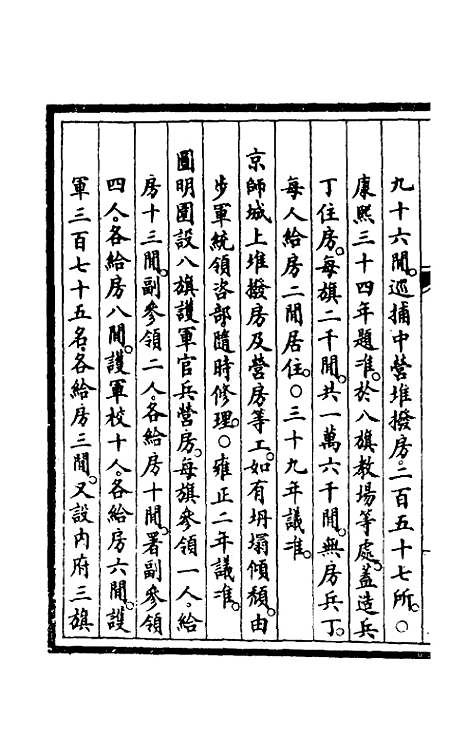 九十六間。巡捕中營堆撥房。二百五十七所。○
康熙三十四年題准。於八旗教場等處。蓋造兵
丁住房。每旗二千間。共一萬六千間。無房兵丁。
每人給房二間居住。○三十九年議准。
京師城上堆撥房及營房等工。如有坍塌傾頹。由
步軍統領咨部隨時修理。○雍正二年議准。
圓明園設八旗護軍官兵營房。每旗參領一人。給
房十三間。副參領二人。各給房十間。署副參領
四人。各給房八間。護軍校十人。各給房六間。護
軍三百七十五名。各給房三間。又設內府三旗